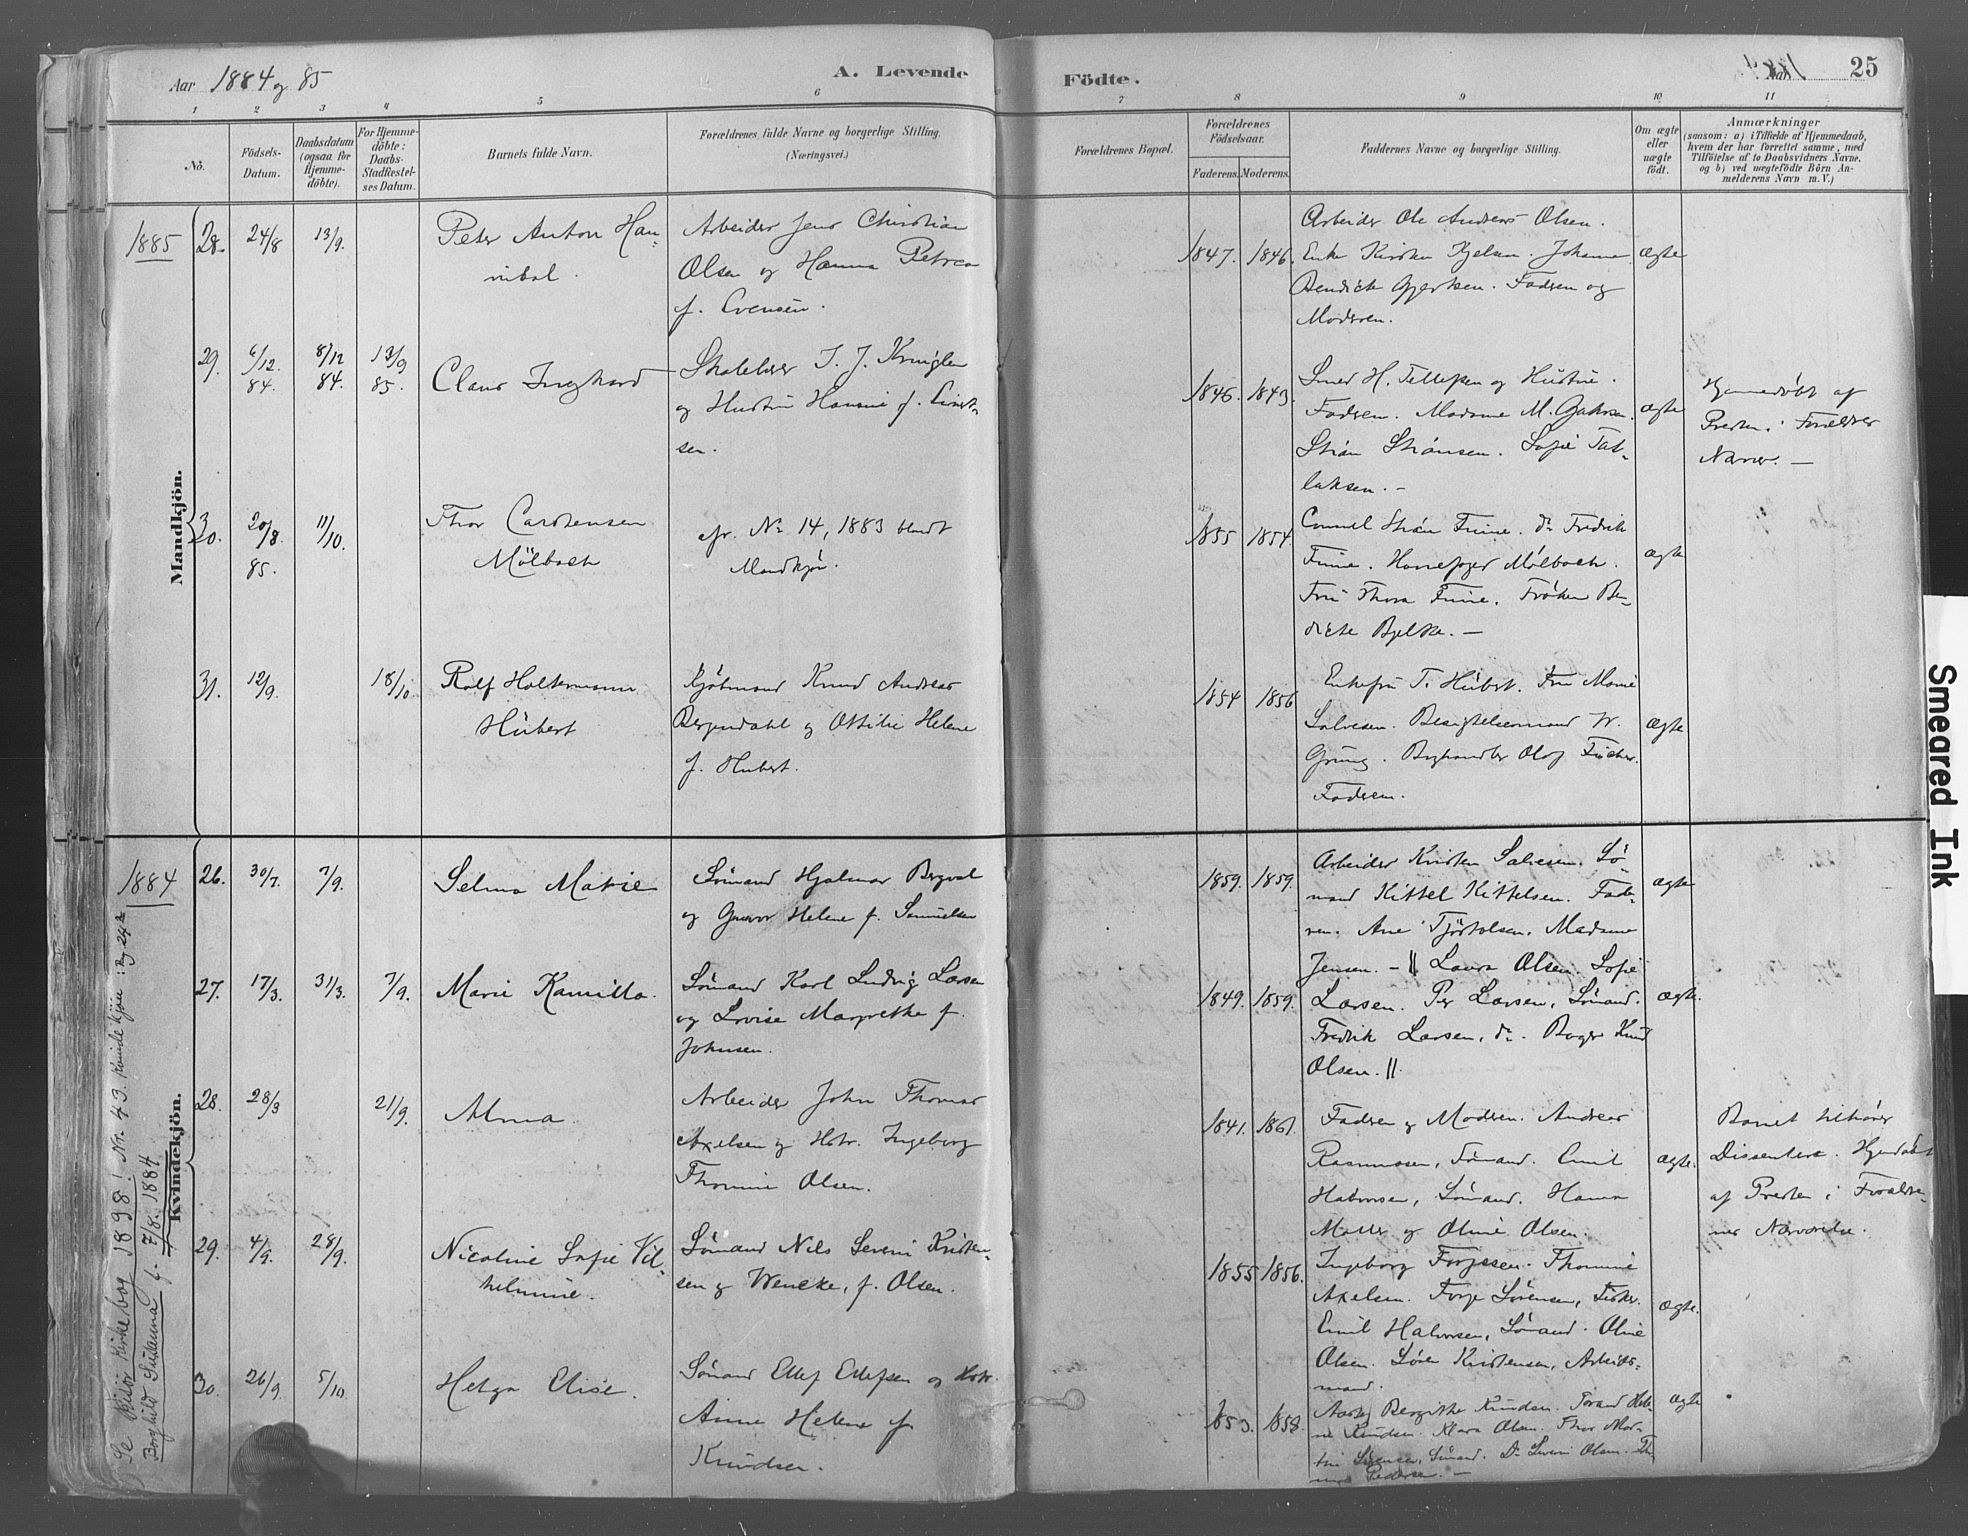 Aar 1884 og 85
A. Levende Födte.
Aar 1884
25
1 2 3 4 5 6 7 8 9 10 11
No.
Födsels-Datum.
Daabsdatum (ogsaa for Hjemmedöbte).
For Hjemmedöbte: Daabs-Stadfestelses Datum.
Barnets fulde Navn.
Forældrenes fulde Navne og borgerlige Stilling. (Næringsvei.)
Forældrenes Bopæl.
Forældrenes Födselsaar.
Faderens. Moderens.
Faddernes Navne og borgerlige Stilling.
Om ægte eller uægte födt.
Anmærkninger
(saasom: a) i Tilfælde af Hjemmedaab, hvem der har forrettet samme, med Tilföielse af to Daabsvidners Navne, og b) ved uægtefödte Börn Anmelderens Navn m. V.)
Mandkjön.
1885
28. 24/8 13/9.
Peter Anton Han-
nibal.
Arbeider Jens Christian
Olsen og Hanna Petrea
f. Evensen.
1847. 1846.
Arbeider Ole Andreas Olsen.
Enke Kirsten Kjelsen. Johanne
Bendicte Gjertsen. Faderen og
Moderen.
ægte
29. 6/12 84. 8/12 84. 13/9 85.
Claus Inghard
J. J. Kruglen
og Hustru Hansine f.
sen.
1846. 1843.
Smed H. Tellefsen og Hustru.
Faderen. Madame M.
Sofie
laksen. –
ægte
Hjemmedöbt af
Presten i Forældres
Nærvær. —
30. 20/8 85. 11/10.
Thor Carstensen
Mölbach
cfr. No 14, 1883 blandt
Mandkjön.
1855 1854.
Consul Finne. do Fredrik
Finne. Mölbach.
Fru Thora Finne. Fröken Be-
dicte Bjelke. —
ægte
31. 12/9. 18/10
Rolf Holtermann
Hübert
Kjöbmand Knud Andreas
Bergendahl og Ottilie Helene
f. Hubert.
1854 1856
Enkefru T. Hübert. Fru Marie
Salvesen. Besigtelsesmand W.
Grung. Boghandler Olaf Fischer.
Faderen.
ægte
Kvindekjön.
1884
26. 30/7. 7/9.
Selma Marie
Sömand Hjalmar Bergval
og Gunvor Helene f. Samuelsen
1859. 1859.
Arbeider Kristen Salvesen. Sö
mand Kittel Kittelsen. Fade-
ren. Ane Madame
Jensen. – ||
ægte
27. 17/3. 31/3. 7/9.
Marie Kamilla.
Sömand Karl Ludvig Larsen
og Lovise Margrethe f.
Johnsen.
1849. 1859.
Laura Olsen. Sofie
Larsen. Per Larsen, Sömand.
Fredrik Larsen, do. Bager Knud
Olsen. ||
ægte.
28. 28/3 21/9.
Alma
Arbeider John Thomas
Axelsen og Hstr. Ingeborg
Thomine Olsen.
1841. 1861.
Faderen og Moderen. Andreas
Rasmussen, Sömand. Emil
Halvorsen, Sömand. Hanna
og Oline Olsen.
ægte.
Barnet tilhörer
Dissentere. Hjemdöbt
af Presten i Forældre-
nes Nærværelse.
29. 4/9. 28/9.
Nicoline Sofie Vil-
helmine.
Sömand Nils Severin Kristen-
sen og Wencke, f. Olsen.
1855 1856.
Ingeborg Thomine
Axelsen. Sörensen, Fisker.
Emil Halvorsen, Sömand. Oline
Olsen. Sören Kristensen, Arbeids-
mand.
ægte.
30. 26/9. 5/10.
Helga Elise.
Sömand Ellef Ellefsen og Hstr.
Anne Helene f.
Knudsen.
1853. 1858.
Bergitte Knudsen. Hele-
ne Knudsen. Klara Olsen. Thor Mar-
tin Sömand. Do Severin Olsen.
Pedersen. —
ægte
Se Risör Kirkebog 1898! Nr. 43. Kvindekjön :
Borghild Susanna f. 7/8. 1884
Smeared Ink